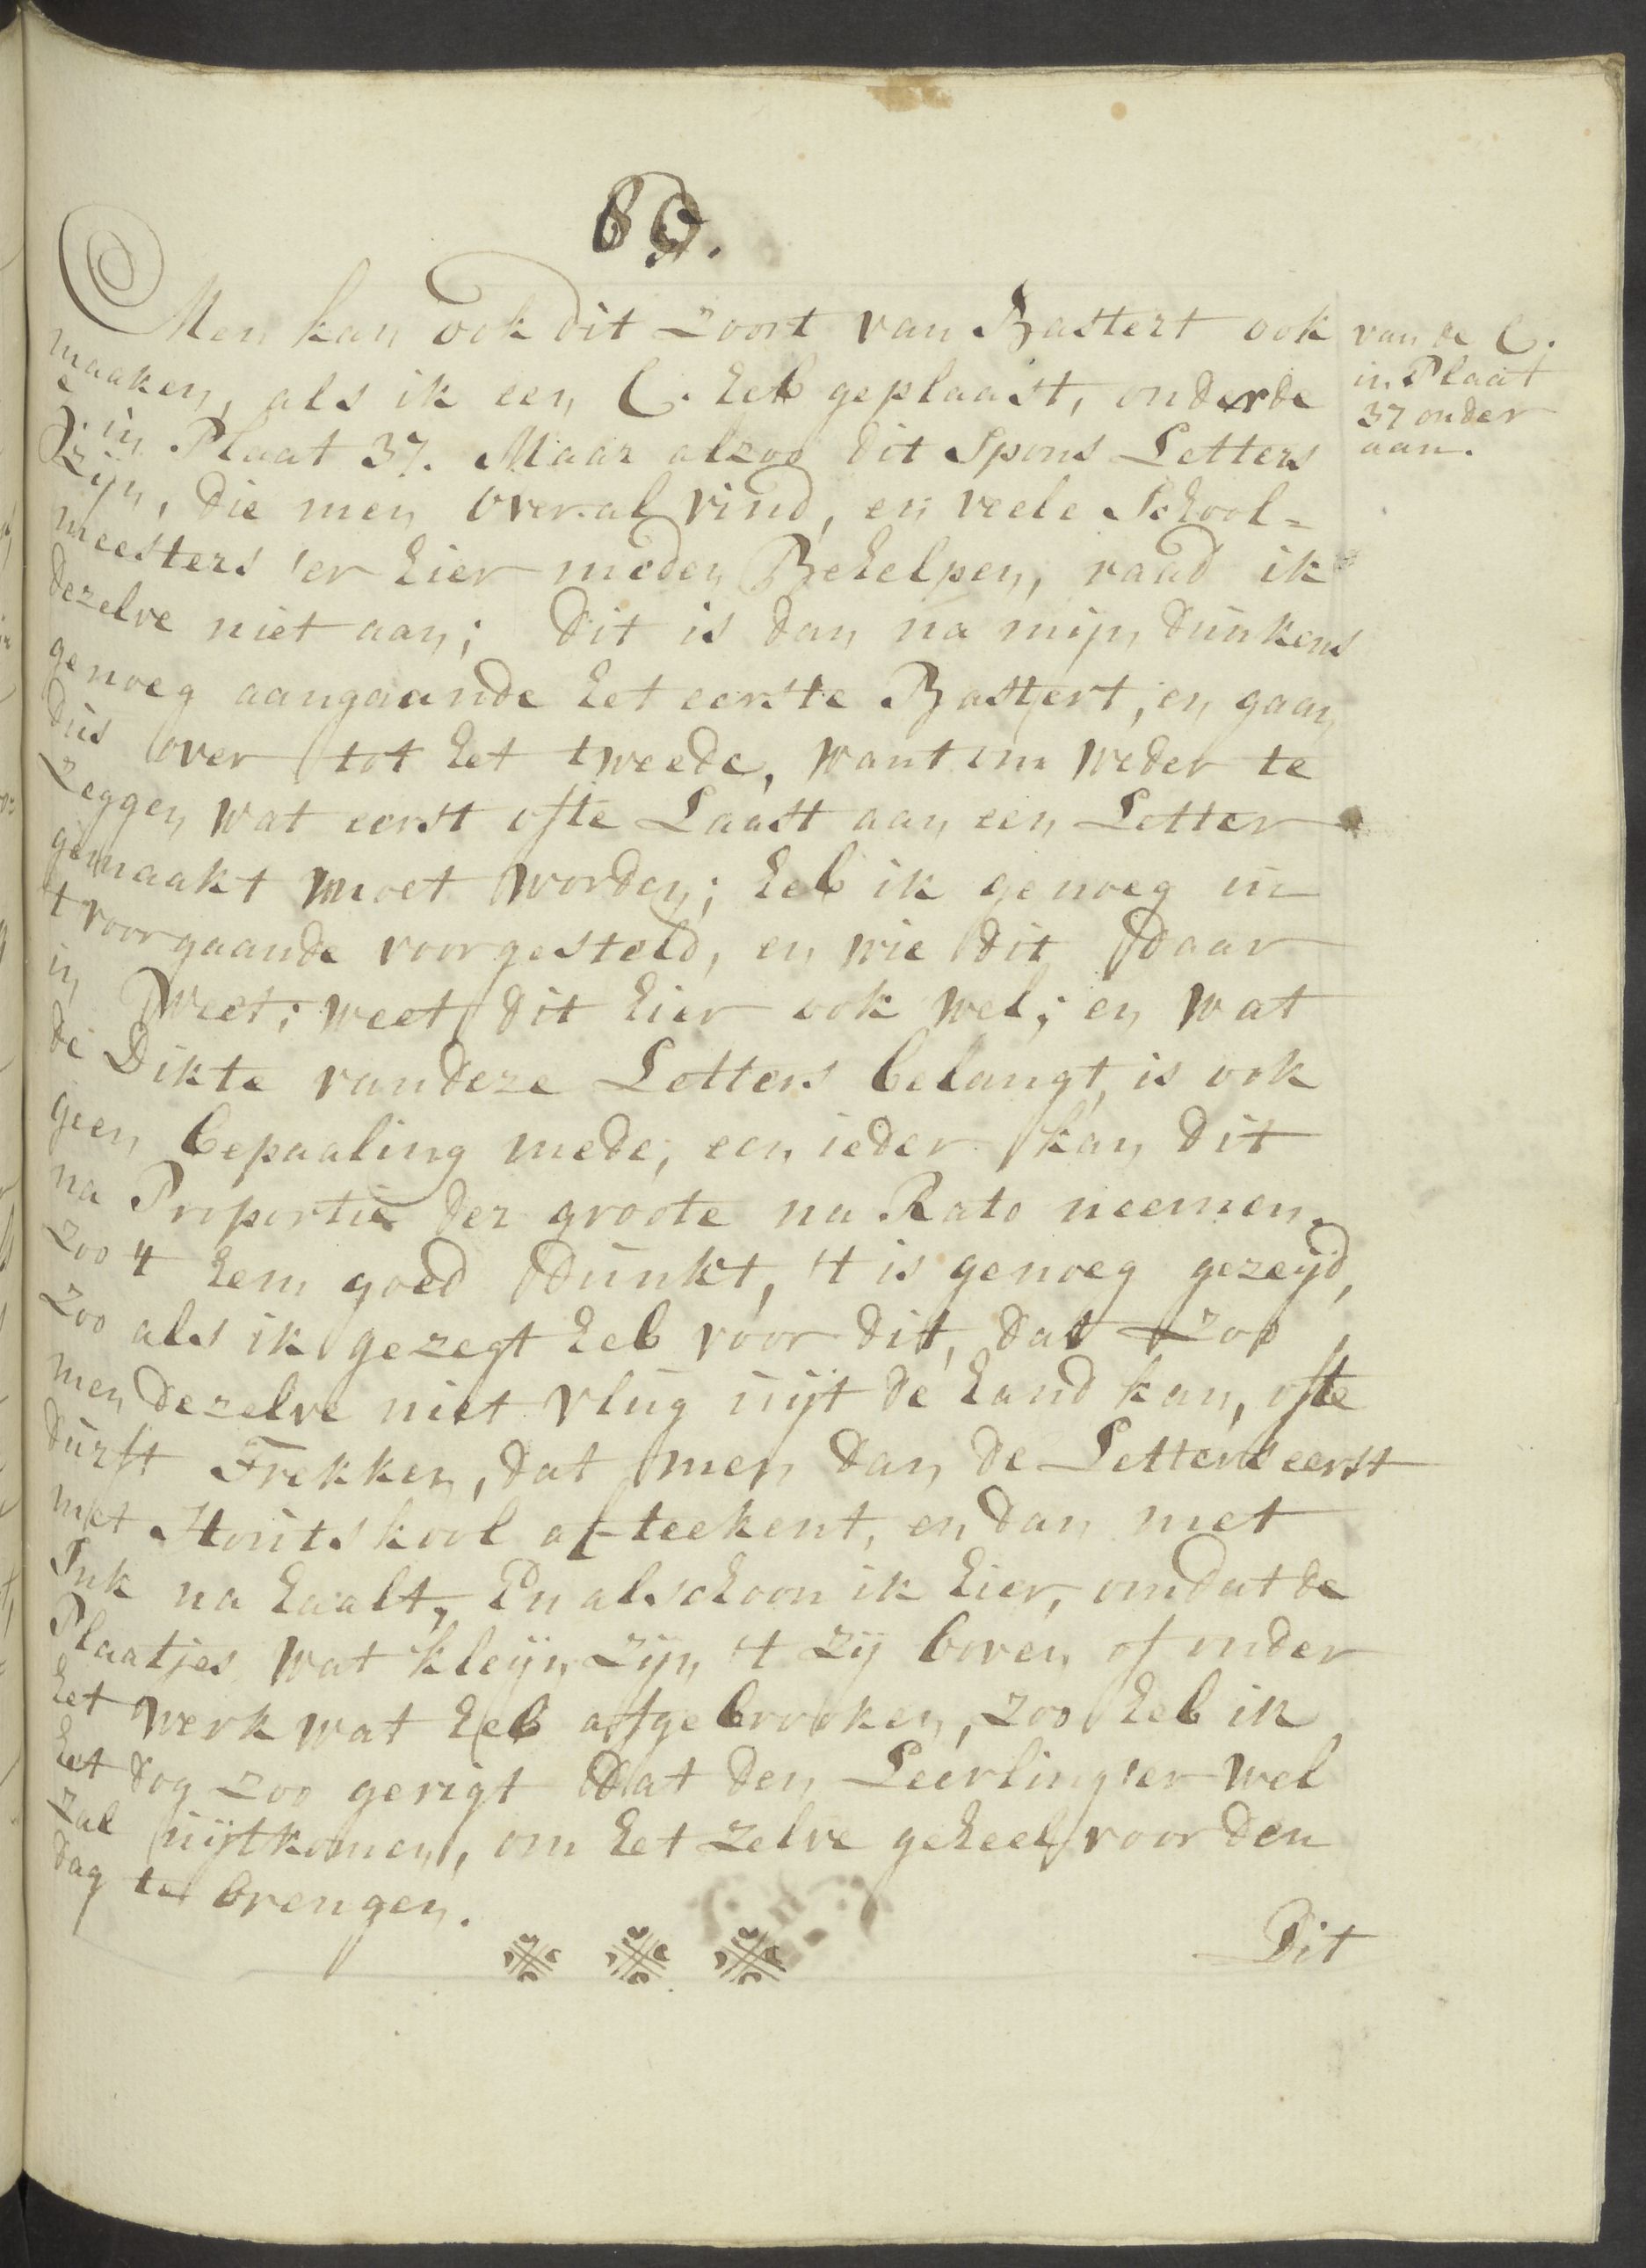 89.
Men kan ook dit zoort van Bastert ook
maaken, als ik een C. heb geplaast, onder de
e in Plaat 37. Maar alzoo dit Spons Letters
zijn, die men overal vind, en veele School=
meesters 'er hier meden Behelpen, raad ik
dezelve niet aan; dit is dan na mijn dunkens
genoeg aangaande het eerste Bastert, en gaan
dus over tot het tweede, want om weder te
zeggen wat eerst ofte Laast aan een Letter
gemaakt moet worden; heb ik genoeg in
't voorgaande voorgesteld, en wie dit daar
in weet; weet dit hier ook wel; en wat
de Dikte van deze Letters belangt, is ook
geen bepaaling mede, een ieder kan dit
na Proportie der groote na Rato neemen.
zoo 't hem goed dunkt, 't is genoeg gezeijd,
zoo als ik gezegt heb voor dit, dat zoo
men dezelve niet vlug uijt de hand kan, ofte
durft Trekken, dat men dan de Letters eerst
met Houtskool afteekent, en dan met
Ink na haalt, En alschoon ik hier, omdat de
Plaatjes wat kleijn zijn 't zij boven of onder
het werk wat heb afgebrooken, zoo heb ik
het dog zoo gerigt dat den Leerling 'er wel
zal uijtkomen, om het zelve geheel voor den
dag te brengen.
Dit
van de C.
in Plaat
37 onder
aan.